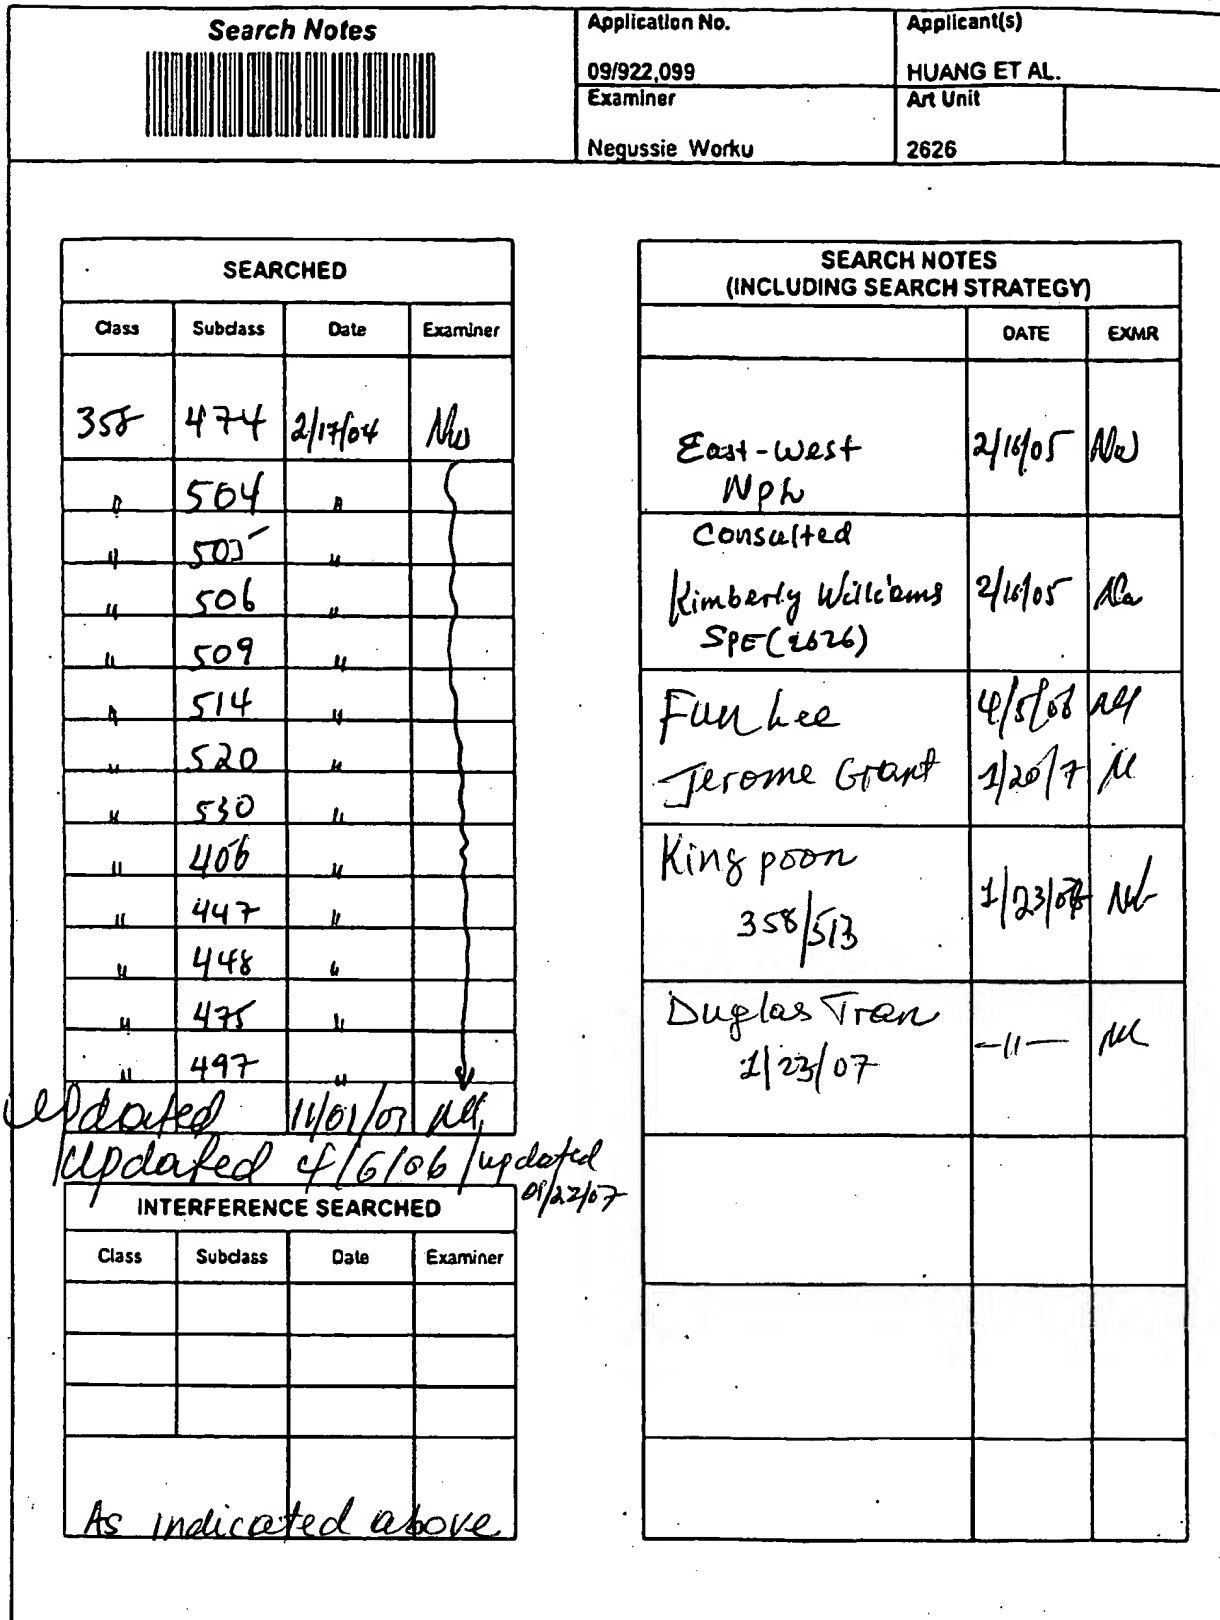 Search Notes
Application No.
09/922,099
Applicant(s)
HUANG ET AL.
Examiner
Negussie Worku
Art Unit
2626
SEARCHED
Class Subclass Date Examiner
358 474 2/17/04 NW
" 504 "
" 505 "
" 506 "
" 509 "
" 514 "
" 520 "
" 530 "
" 406 "
" 447 "
" 448 "
" 475 "
" 497 "
updated
updated 4/6/06 / updated
01/22/07
INTERFERENCE SEARCHED
Class Subclass Date Examiner
As indicated above
SEARCH NOTES
(INCLUDING SEARCH STRATEGY)
DATE EXMR
East-West 2/16/05 NW
NPL
Consulted
Kimberly Williams 2/16/05
SPE (2626)
Fun Lee
Jerome Grant 1/20/7
King poon
358/513
Duglas Tran —"—
1/23/07